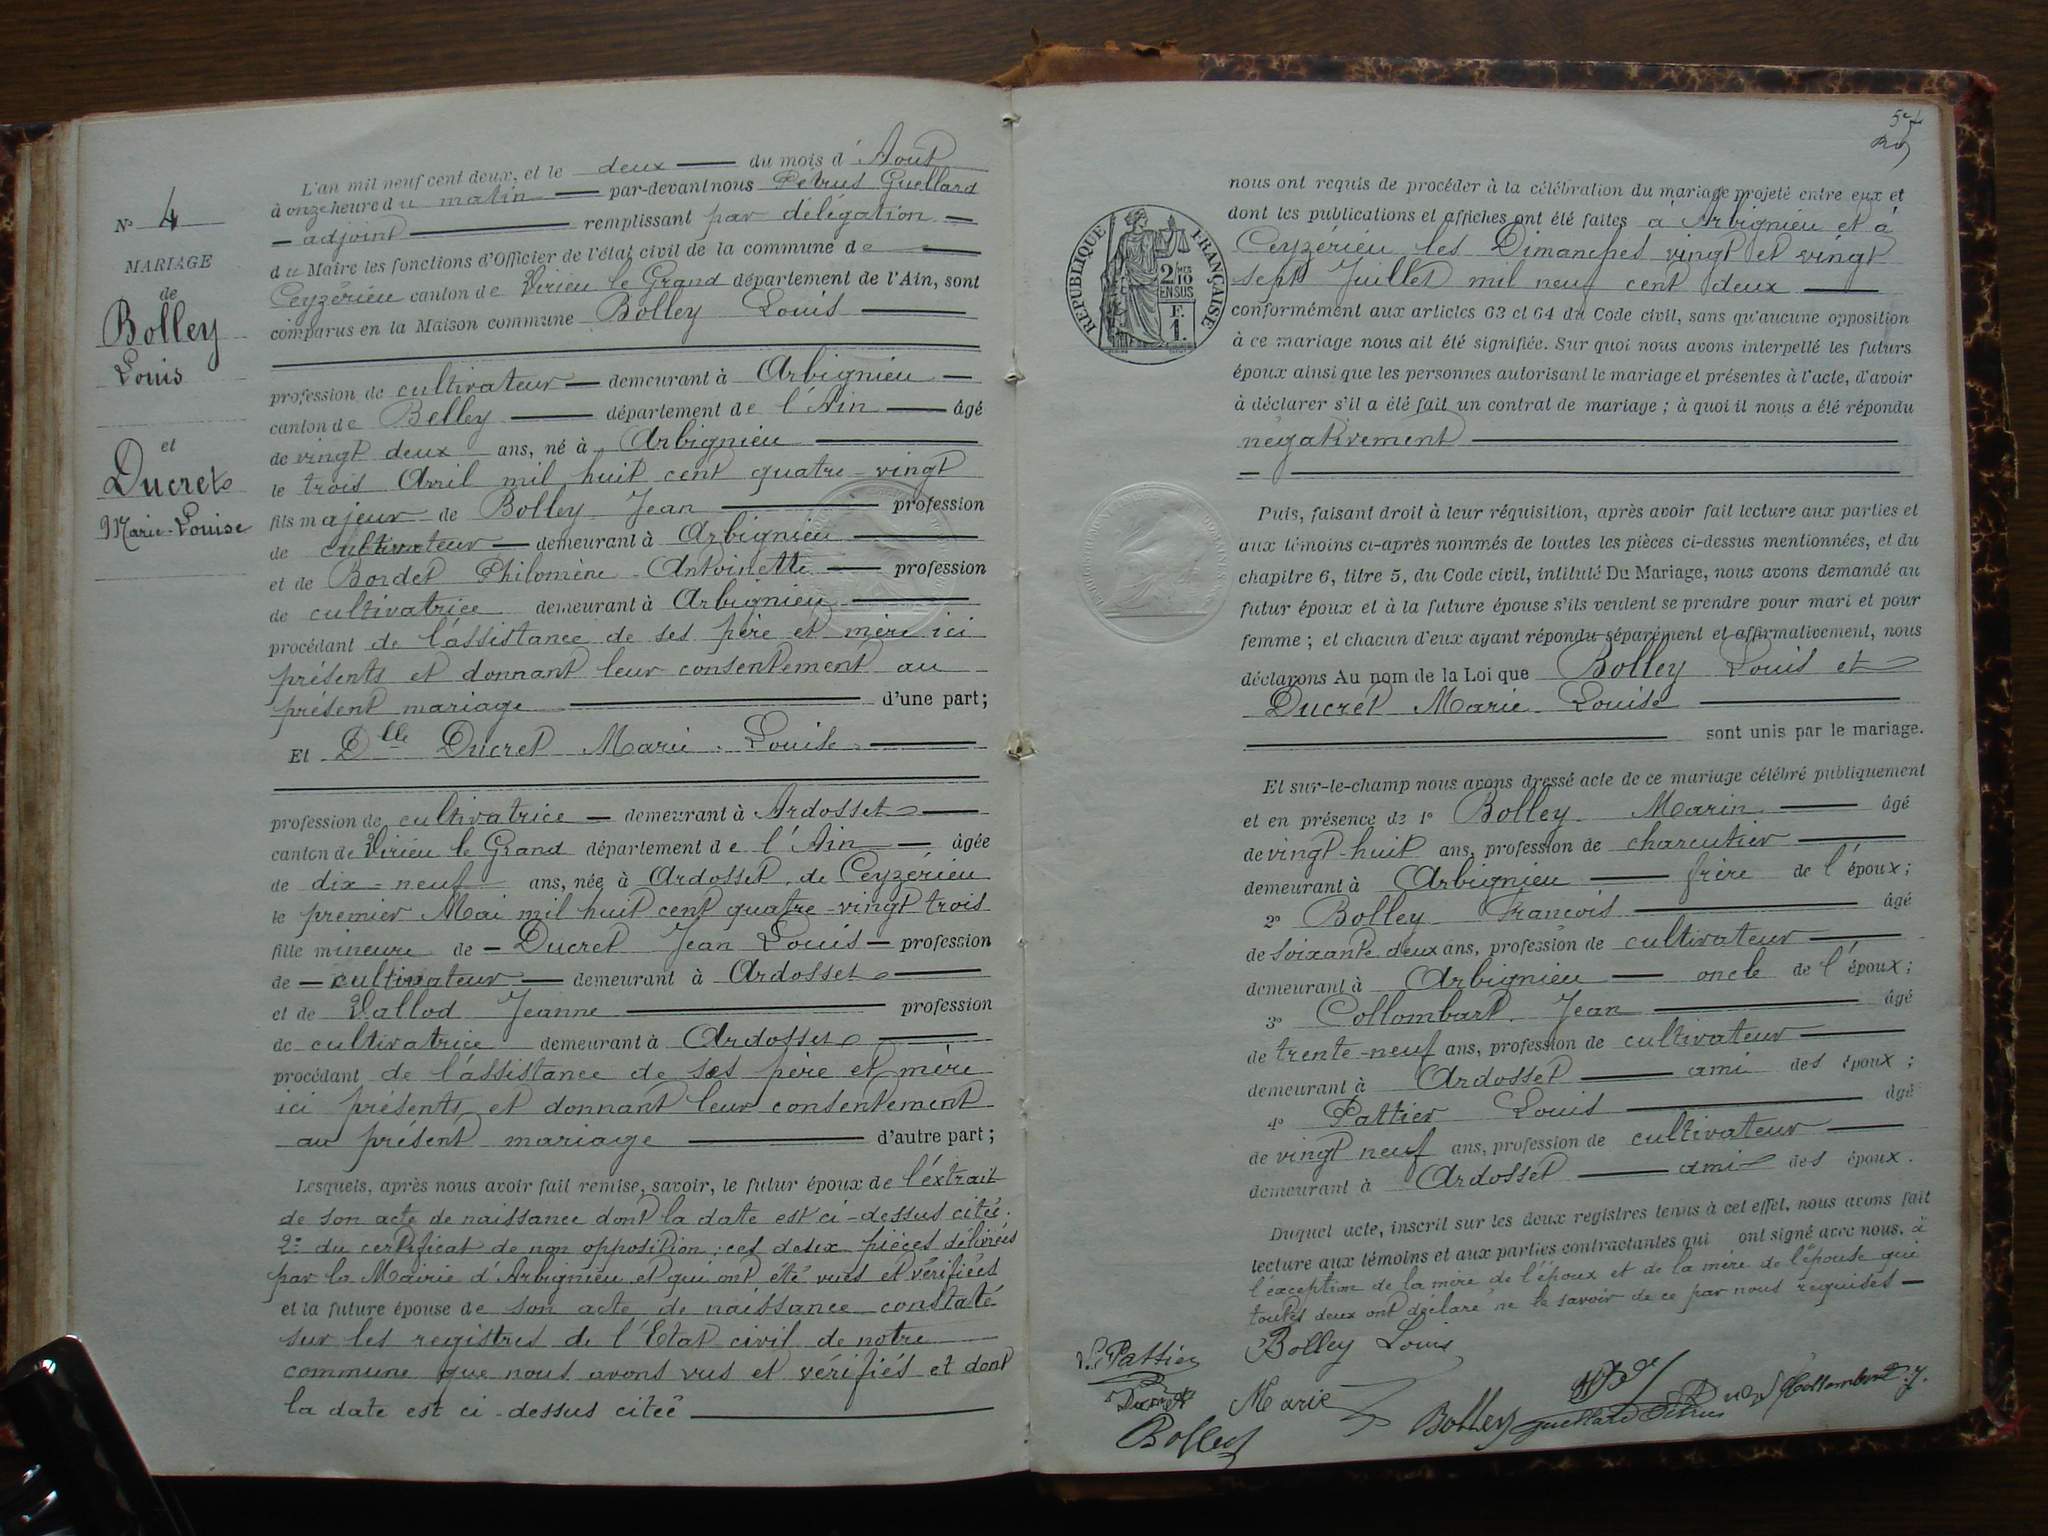 N° 4
MARIAGE
de
Bolley
Louis
et
Ducret
Marie-Louise
L'an mil neuf cent deux, et le deux du mois d'Aout
à onze heure du matin par-devant nous Petrus Guellard
adjoint remplissant par délégation
du Maire les fonctions d'Officier de l'état civil de la commune de
Ceyzérieu canton de Virieu le Grand département de l'Ain, sont
comparus en la Maison commune Bolley Louis
profession de cultivateur demeurant à Arbignieu
canton de Belley département de l'Ain âgé
de vingt deux ans, né à Arbignieu
le trois Avril mil huit cent quatre-vingt
fils majeur de Bolley Jean profession
de cultivateur demeurant à Arbignieu
et de Bordet Philomène Antoinette profession
de cultivatrice demeurant à Arbignieu
procédant de l'assistance de ses père et mère ici
présents et donnant leur consentement au
présent mariage d'une part;
Et Dlle Ducret Marie-Louise
profession de cultivatrice demeurant à Ardosset
canton de Virieu le Grand département de l'Ain âgée
de dix-neuf ans, née à Ardosset de Ceyzérieu
le premier Mai mil huit cent quatre-vingt trois
fille mineure de Ducret Jean Louis profession
de cultivateur demeurant à Ardosset
et de Vallod Jeanne profession
de cultivatrice demeurant à Ardosset
procédant de l'assistance de ses père et mère
ici présents et donnant leur consentement
au présent mariage d'autre part;
Lesquels, après nous avoir fait remise, savoir, le futur époux de l'éxtrait
de son acte de naissance dont la date est ci-dessus citée.
2° du certificat de non opposition; ces deux pièces délivrées
par la Mairie d'Arbignieu et qui ont été vues et vérifiées
et la future épouse de son acte de naissance constaté
sur les registres de l'Etat civil de notre
commune que nous avons vus et vérifiés et dont
la date est ci-dessus citée
REPUBLIQUE FRANÇAISE
2/10mes
EN SUS
F.
1.
nous ont requis de procéder à la célébration du mariage projeté entre eux et
dont les publications et affiches ont été faites à Arbignieu et à
Ceyzérieu les Dimanches vingt et vingt
sept Juillet mil neuf cent deux
conformément aux articles 63 et 64 du Code civil, sans qu'aucune opposition
à ce mariage nous ait été signifiée. Sur quoi nous avons interpellé les futurs
époux ainsi que les personnes autorisant le mariage et présentes à l'acte, d'avoir
à déclarer s'il a été fait un contrat de mariage; à quoi il nous a été répondu
négativement
Puis, faisant droit à leur réquisition, après avoir fait lecture aux parties et
aux témoins ci-après nommés de toutes les pièces ci-dessus mentionnées, et du
chapitre 6, titre 5, du Code civil, intitulé Du Mariage, nous avons demandé au
futur époux et à la future épouse s'ils veulent se prendre pour mari et pour
femme; et chacun d'eux ayant répondu séparément et affirmativement, nous
déclarons Au nom de la Loi que Bolley Louis et
Ducret Marie-Louise
sont unis par le mariage.
Et sur-le-champ nous avons dressé acte de ce mariage célébré publiquement
et en présence de 1° Bolley Marin âgé
de vingt-huit ans, profession de charcutier
demeurant à Arbignieu frère de l'époux;
2° Bolley François âgé
de soixante deux ans, profession de cultivateur
demeurant à Arbignieu oncle de l'époux;
3° Collombart Jean âgé
de trente-neuf ans, profession de cultivateur
demeurant à Ardosset ami des époux;
4° Pattier Louis âgé
de vingt neuf ans, profession de cultivateur
demeurant à Ardosset ami des époux.
Duquel acte, inscrit sur les deux registres tenus à cet effet, nous avons fait
lecture aux témoins et aux parties contractantes qui ont signé avec nous, à
l'exception de la mère de l'époux et de la mère de l'épouse qui
toutes deux ont déclaré ne le savoir de ce par nous requises
Bolley Louis
L. Pattier
Ducret Marie
Bolley
Bolley
Guellard Petrus
Collombart J.